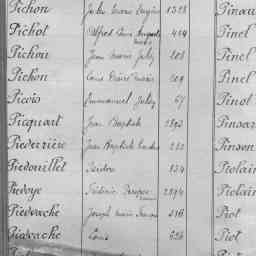 Pichon Jules Marie Eugène 1328 Pinau
Pichot Alfred Louis Auguste 414 Pinel
Marie
Pichou Jean Marie Jules 208 Pinel
Pichon Louis Désiré Marie 209 Pinel
Picois Emmanuel Jules 67 Pinot
Picquart Jean Baptiste Pinsar
Piederrière Jean Baptiste Pinson
Piedouillet Isidore 134 Piolain
Piedoye Frédéric 1294 Piolain
Piedvache Joseph Marie 516 Piot
Piedvache Louis 626 Piot